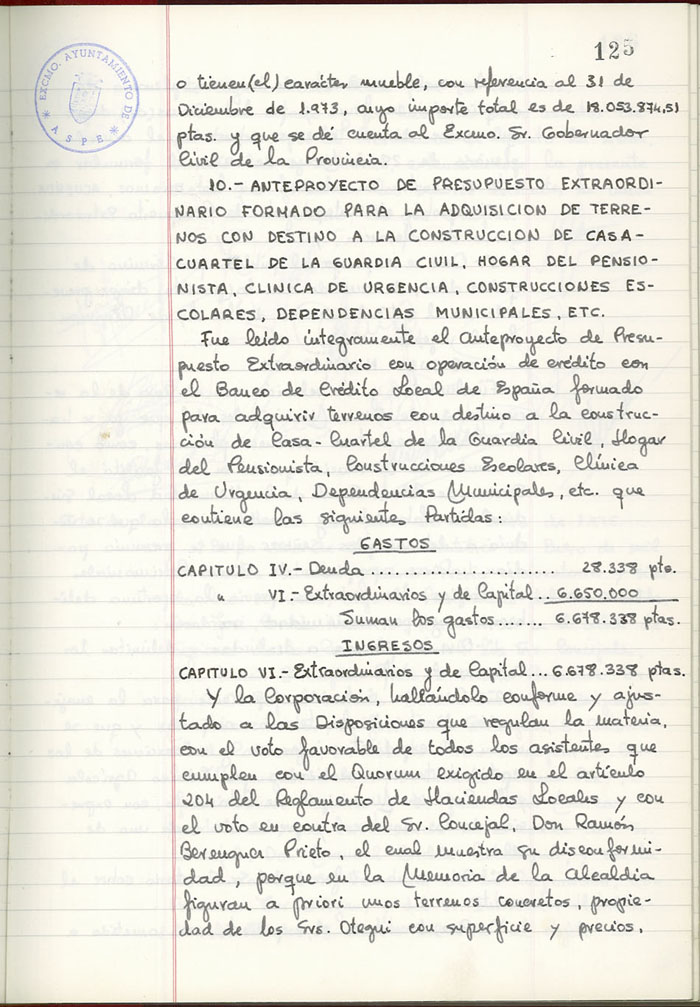 125
EXCMO. AYUNTAMIENTO DE
* ASPE *
o tienen (el) carácter mueble, con referencia al 31 de
Diciembre de 1.973, cuyo importe total es de 18.053.874,51
ptas. y que se dé cuenta al Excmo. Sr. Gobernador
Civil de la Provincia.
10.- ANTEPROYECTO DE PRESUPUESTO EXTRAORDI-
NARIO FORMADO PARA LA ADQUISICION DE TERRE-
NOS CON DESTINO A LA CONSTRUCCION DE CASA-
CUARTEL DE LA GUARDIA CIVIL, HOGAR DEL PENSIO-
NISTA, CLINICA DE URGENCIA, CONSTRUCCIONES ES-
COLARES, DEPENDENCIAS MUNICIPALES, ETC.
Fue leído íntegramente el Anteproyecto de Presu-
puesto Extraordinario con operación de crédito con
el Banco de Crédito Local de España formado
para adquirir terrenos con destino a la construc-
ción de Casa-Cuartel de la Guardia Civil, Hogar
del Pensionista, Construcciones Escolares, Clínica
de Urgencia, Dependencias Municipales, etc. que
contiene las siguientes Partidas:
GASTOS
CAPITULO IV.- Deuda ..................... 28.338 pts.
" VI.- Extraordinarios y de Capital .. 6.650.000
Suman los gastos....... 6.678.338 ptas.
INGRESOS
CAPITULO VI.- Extraordinarios y de Capital... 6.678.338 ptas.
Y la Corporación, hallándolo conforme y ajus-
tado a las Disposiciones que regulan la materia,
con el voto favorable de todos los asistentes que
cumplen con el Quorum exigido en el artículo
204 del Reglamento de Haciendas Locales y con
el voto en contra del Sr. Concejal, Don Ramón
Berenguer Prieto, el cual muestra su disconformi-
dad, porque en la Memoria de la Alcaldía
figuran a priori unos terrenos concretos, propie-
dad de los Srs. Otegui con superficie y precios,